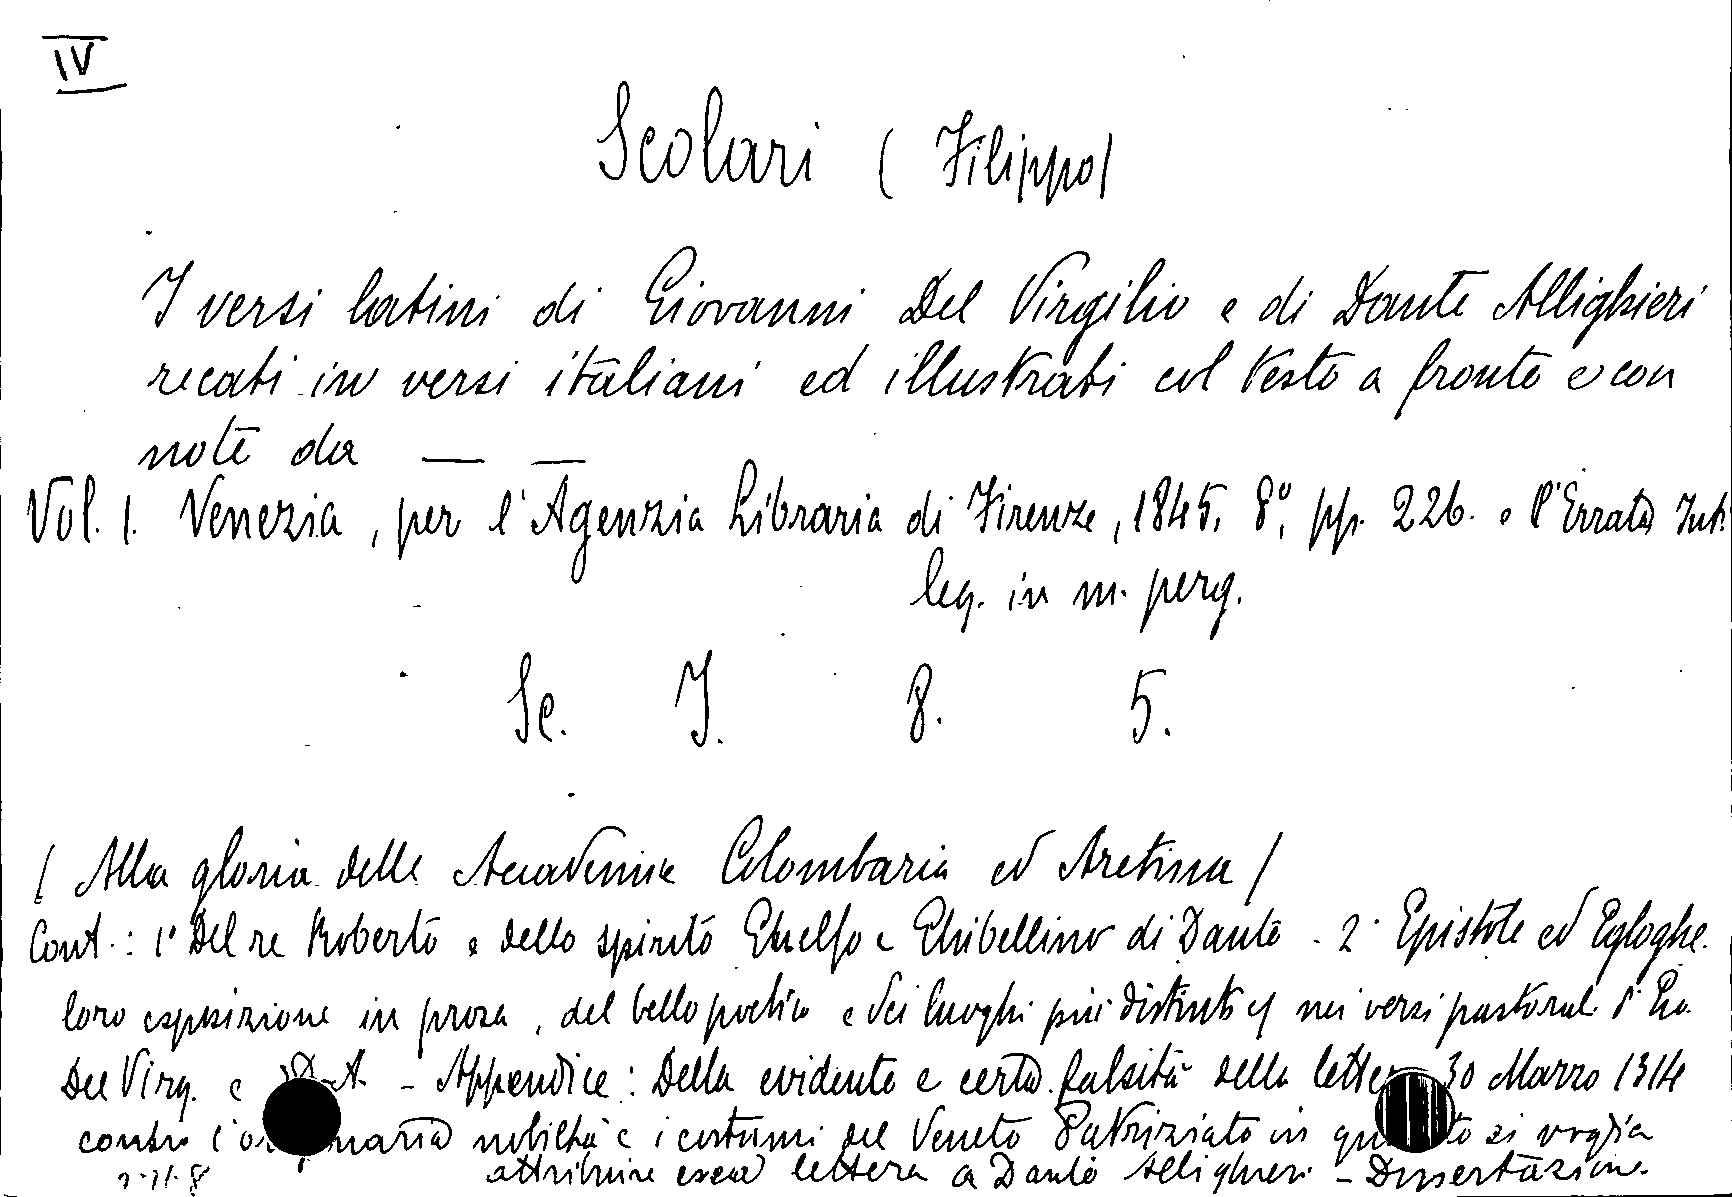 IV
Scolari (Filippo)
I versi latini di Giovanni Del Virgilio e di Dante Allighieri
recati in versi italiani ed illustrati col testo a fronte e con
note da — —
Vol. 1. Venezia, per l'Agenzia Libraria di Firenze, 1845, 8°, pp. 226. e l'Errata
leg. in m. perg.
Sc. I. 8. 5.
(Alla gloria delle Accademie Colombaria ed Aretina)
Cont.: 1° Del re Roberto e dello spirito Ghuelfo e Ghibellino di Dante - 2° Epistole ed Egloghe.
loro esposizione in prosa, del bello poetico e dei luoghi più distinti nei versi pastorali
Del Virg. e D. A. - Appendice: Della evidente e certa falsità della lettera 30 Marzo 1314
contro l'originaria nobiltà e i costumi del Veneto Patriziato in quanto si voglia
attribuire essa lettera a Dante Allighieri - Dissertazione.